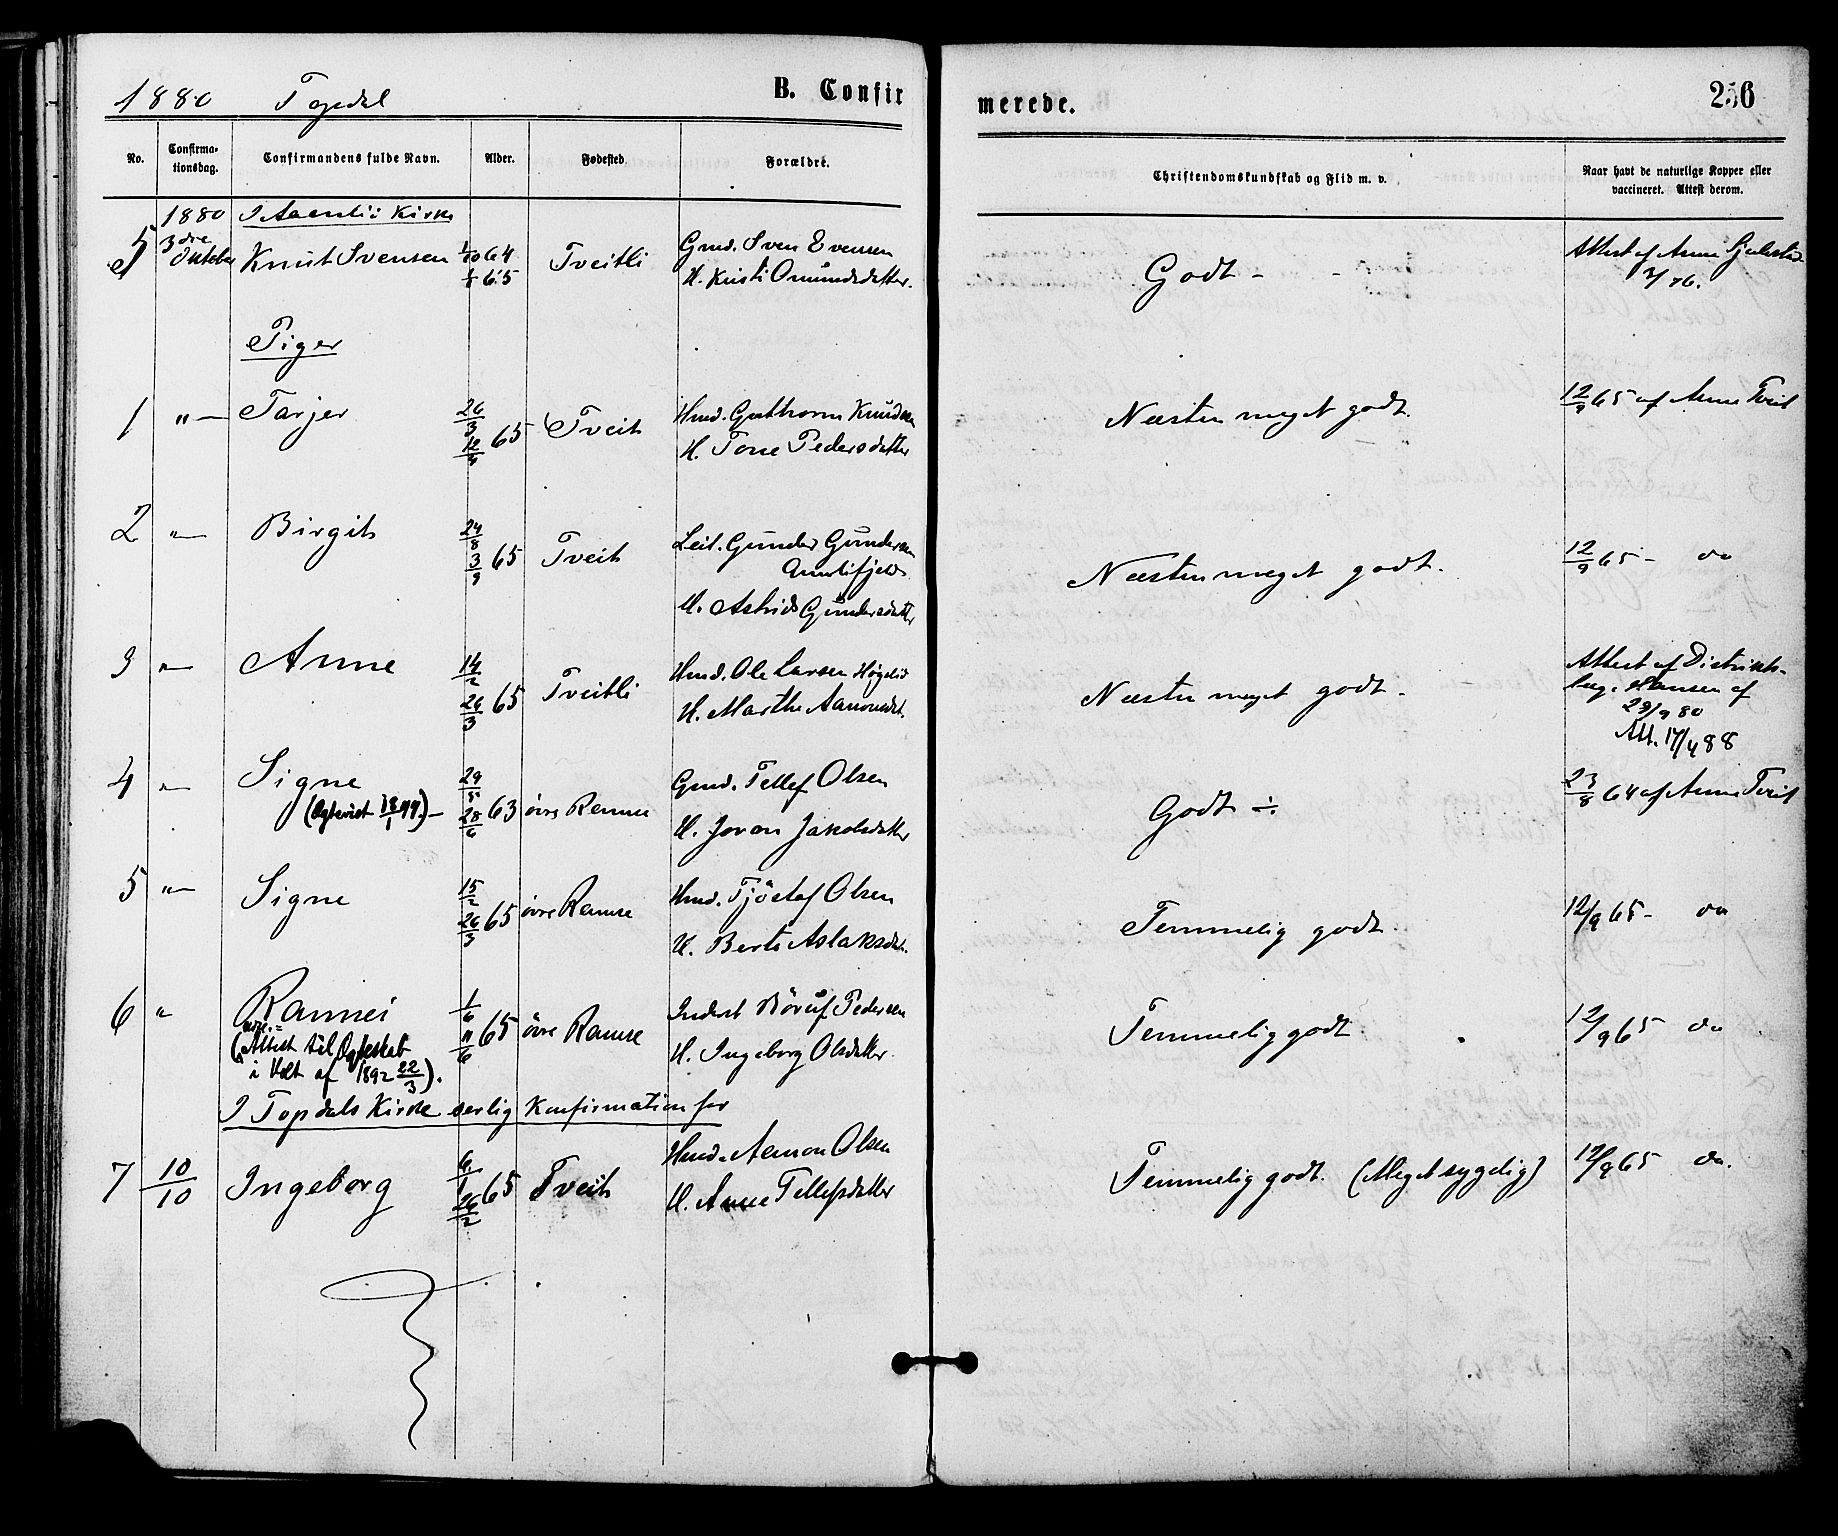 1880 Topdal B. Confirmerede. 256
No. Confirmationsdag. Confirmandens fulde Navn. Alder. Fødested Forældre. Christendomskundskab og Flid m. v. Naar havt de naturlige Kopper eller vaccineret. Attest derom.
1880 I Aamli Kirke
5 3die Oktober Knut Svensen 64 65 Tveitli Gmd. Sven Evensen Godt - Attest af Anne
H. Kristi Omundsdatter.
Piger
1 "— Tarjer 26/3 65 Tveit Hmd. Guthorm Knudsen Næsten meget godt. 12/9 65 af Anne Tveit
H. Tone Pedersdatter
2 "— Birgit 24/8 3/9 65 Tveit Leil. Gunder Gundersen Næsten meget godt. 12/9 65 - do
H. Astrid Gundersdatter
3 "— Anne 14/2 26/3 65 Tveitli Hmd. Ole Larsen Høgelid Næsten meget godt - Attest af Distrikts-
H. Marthe Aanonsdt. læge Hansen af
23/9 80
Att. 17/4 88
4 "— Signe 29/5 28/6 63 övre Ramse Gmd. Tellef Olsen Godt ÷ 23/8 64 af Anne Tveit
H. Joron Jakobsdatter
5 "— Signe 15/2 26/3 65 övre Ramse Hmd. Tjöstaf Olsen Temmelig godt 12/9 65 - do
H. Berte Aslaksdat.
6 " Rannei 1/6 11/6 65 övre Ramse Inderst Böruf Pedersen Temmelig godt 12/9 65 do
(Attest til Ægteskab H. Ingeborg Olsdatter
i Holt af 1892 22/3).
I Topdals Kirke serlig Konfirmation for
7 10/10 Ingeborg 6/1 26/2 65 Tveit Hmd. Aanon Olsen Temmelig godt. (Meget sygelig) 12/9 65 do.
H. Anne Tellefsdatter